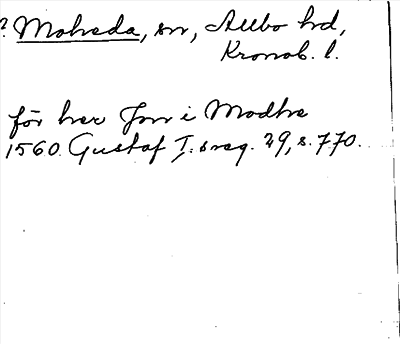 ? Moheda, sn, Allbo hd,
Kronob. l.
för her Jon i Modhe
1560. Gustaf I:s reg. 29, s. 770.